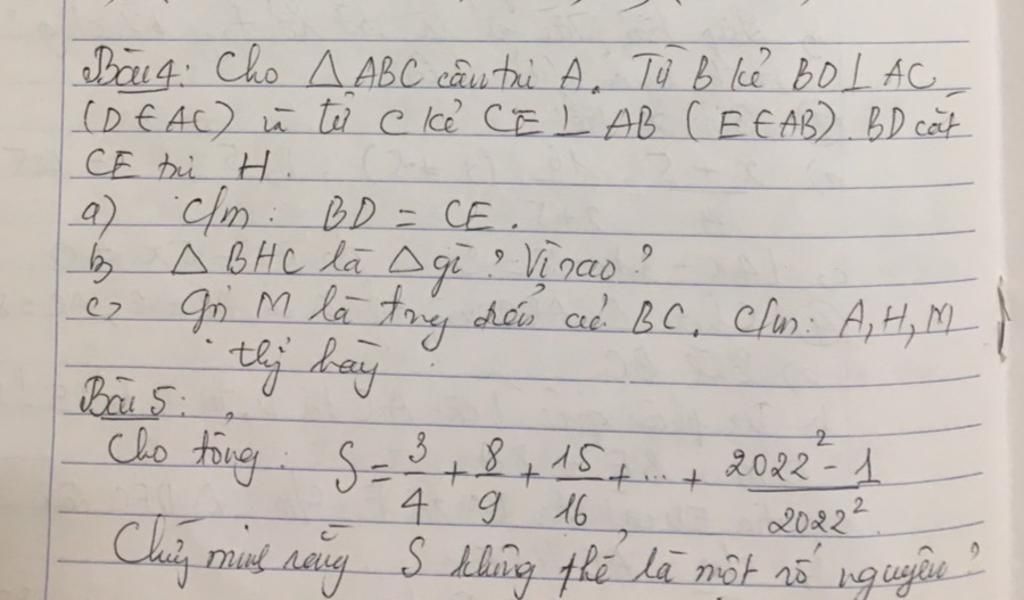 Bài 4: Cho △ABC cân tại A. Từ B kẻ BD ⊥ AC
(D ∈ AC) và từ C kẻ CE ⊥ AB (E ∈ AB). BD cắt
CE tại H.
a) C/m: BD = CE.
b) △BHC là △ gì? Vì sao?
c) Gọi M là trung điểm của BC. C/m: A, H, M
thẳng hàng
Bài 5:
Cho tổng: S = 3/4 + 8/9 + 15/16 + ... + (2022² - 1)/2022²
Chứng minh rằng S không thể là một số nguyên?